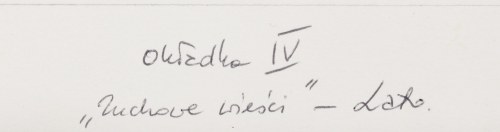 Okładka IV
„Zuchowe wieści” – Lato.